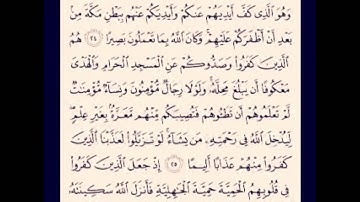 وَهُوَ ٱلَّذِى كَفَّ أَيْدِيَهُمْ عَنكُمْ وَأَيْدِيَكُمْ عَنْهُم بِبَطْنِ مَكَّةَ مِنۢ
بَعْدِ أَنْ أَظْفَرَكُمْ عَلَيْهِمْ ۚ وَكَانَ ٱللَّهُ بِمَا تَعْمَلُونَ بَصِيرًا ٢٤ هُمُ
ٱلَّذِينَ كَفَرُوا۟ وَصَدُّوكُمْ عَنِ ٱلْمَسْجِدِ ٱلْحَرَامِ وَٱلْهَدْىَ
مَعْكُوفًا أَن يَبْلُغَ مَحِلَّهُۥ ۚ وَلَوْلَا رِجَالٌ مُّؤْمِنُونَ وَنِسَآءٌ مُّؤْمِنَـٰتٌ
لَّمْ تَعْلَمُوهُمْ أَن تَطَـُٔوهُمْ فَتُصِيبَكُم مِّنْهُم مَّعَرَّةٌۢ بِغَيْرِ عِلْمٍ ۖ
لِّيُدْخِلَ ٱللَّهُ فِى رَحْمَتِهِۦ مَن يَشَآءُ ۚ لَوْ تَزَيَّلُوا۟ لَعَذَّبْنَا ٱلَّذِينَ
كَفَرُوا۟ مِنْهُمْ عَذَابًا أَلِيمًا ٢٥ إِذْ جَعَلَ ٱلَّذِينَ كَفَرُوا۟
فِى قُلُوبِهِمُ ٱلْحَمِيَّةَ حَمِيَّةَ ٱلْجَـٰهِلِيَّةِ فَأَنزَلَ ٱللَّهُ سَكِينَتَهُۥ